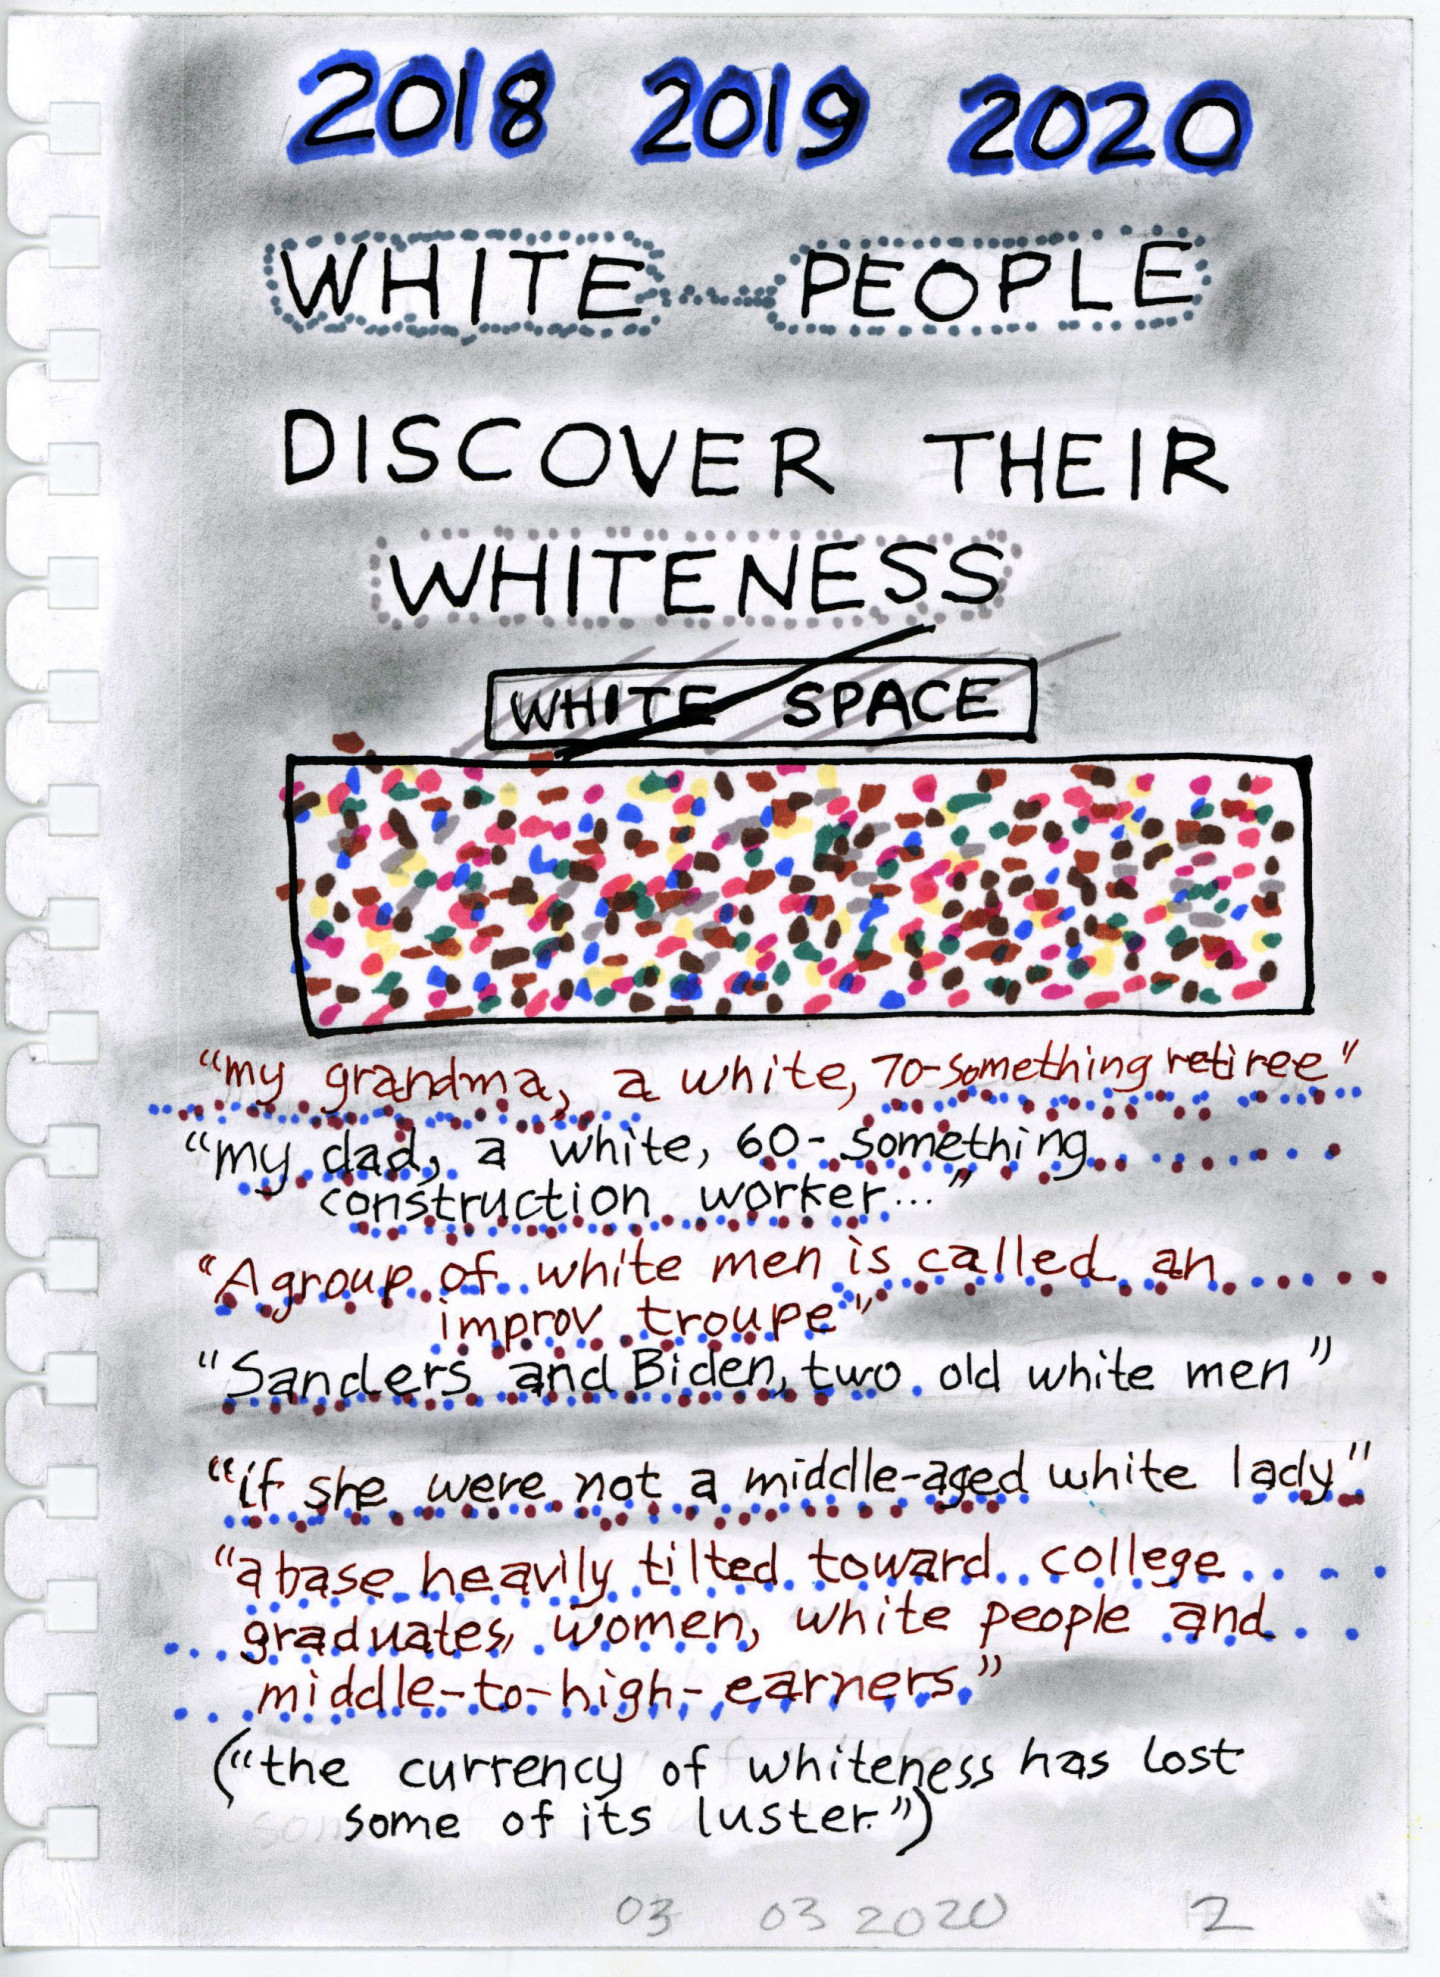 2018 2019 2020
WHITE PEOPLE
DISCOVER THEIR
WHITENESS
WHITE SPACE
"my grandma, a white, 70-something retiree"
"my dad, a white, 60-something
construction worker..."
"A group of white men is called an
improv troupe"
"Sanders and Biden, two old white men"
"if she were not a middle-aged white lady"
"a base heavily tilted toward college
graduates, women, white people and
middle-to-high-earners."
("the currency of whiteness has lost
some of its luster.")
03 03 2020 2